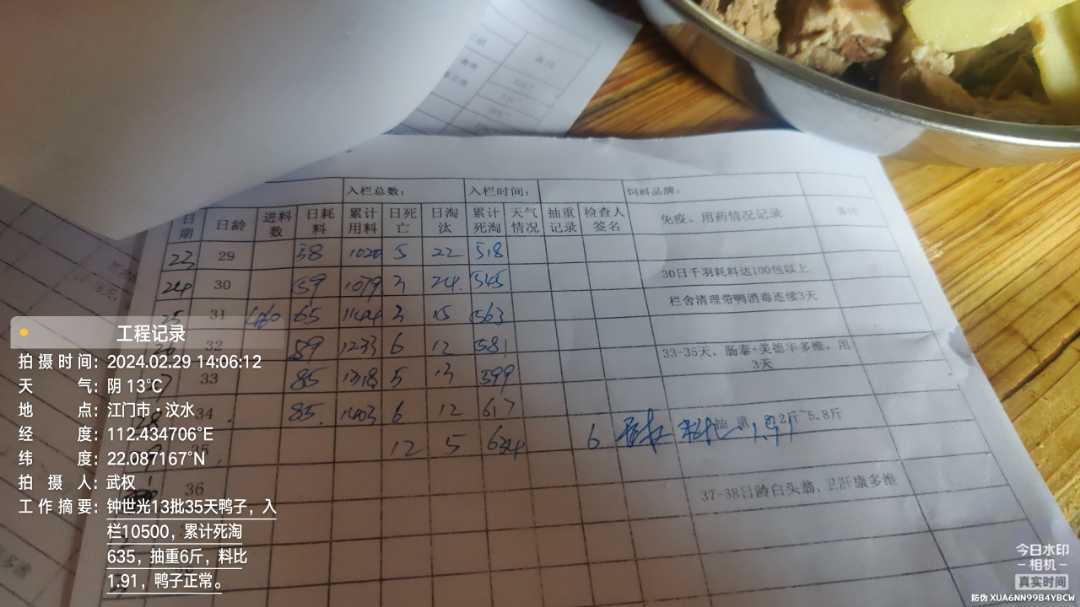 入栏总数： 入栏时间： 饲料品牌：
日期 日龄 进料数 日耗料 累计用料 日死亡 日淘汰 累计死淘 天气情况 抽重记录 检查人签名 免疫、用药情况记录 备注
23 29 58 1020 5 22 518
24 30 59 1079 3 24 545 30日千羽耗料达100包以上
25 31 460 65 1144 3 15 563 栏舍清理带鸭消毒连续3天
32 89 1233 6 12 581 33-35天，肠泰+美德平多维，用3天
33 85 1318 5 13 599
34 85 1403 6 12 617
12 5 634 6 料 1.91 5.8斤
36 37-38日龄白头翁、卫肝康多维
工程记录
拍摄时间：2024.02.29 14:06:12
天 气：阴 13℃
地 点：江门市·汶水
经 度：112.434706°E
纬 度：22.087167°N
拍 摄 人：武权
工作摘要：钟世光13批35天鸭子，入
栏10500，累计死淘
635，抽重6斤，料比
1.91，鸭子正常。
今日水印
-相机-
真实时间
防伪 XUA6NN99B4YBCW